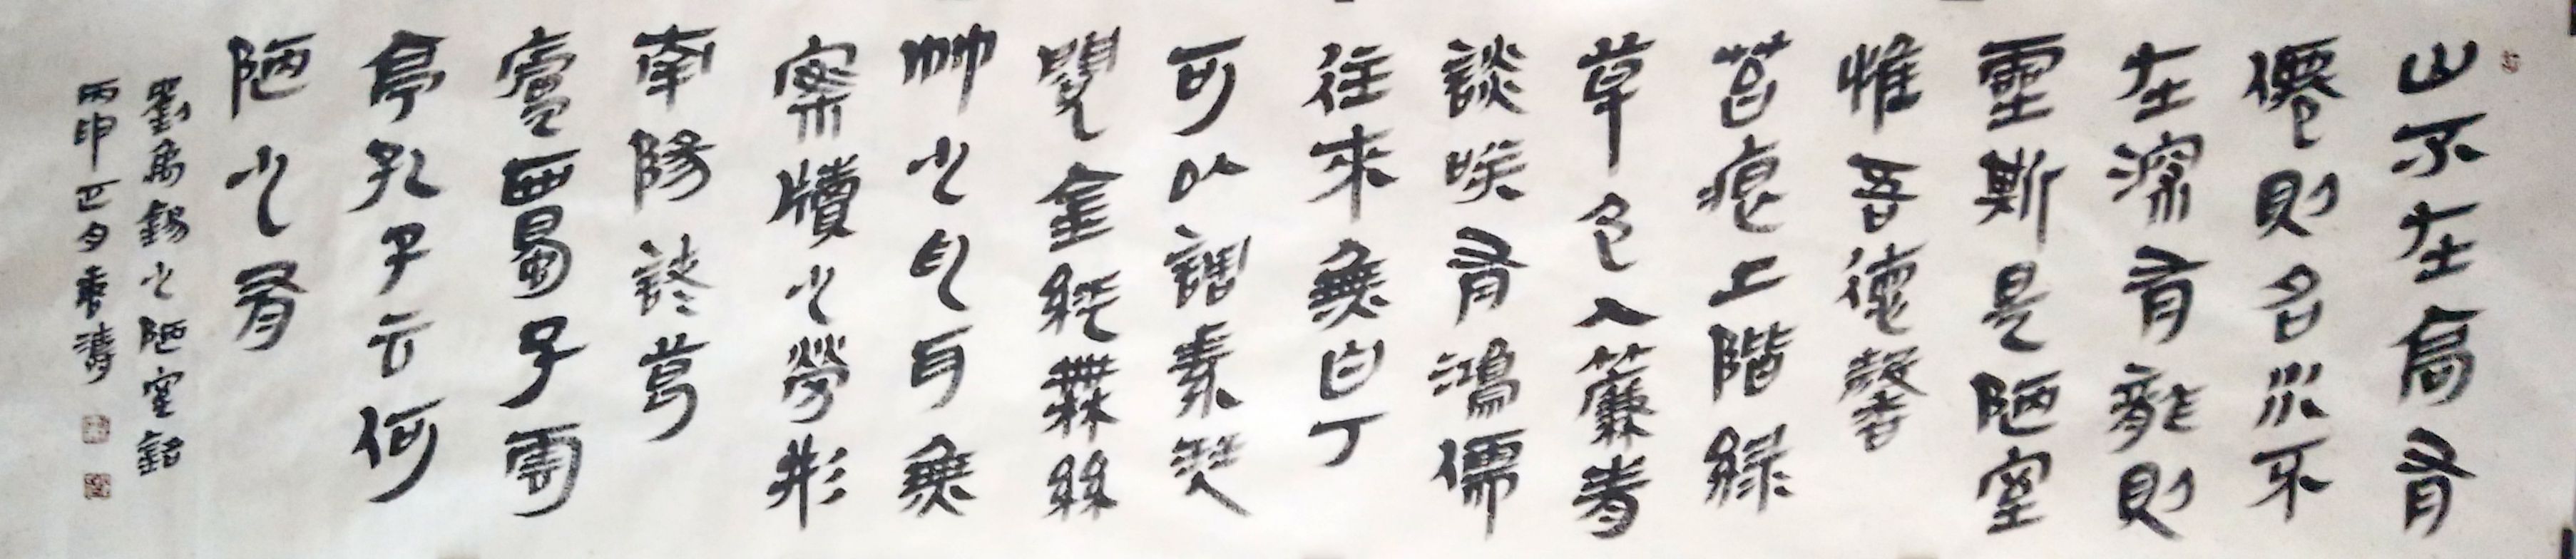 山不在高有
僊則名水不
在深有龍則
靈斯是陋室
惟吾德馨
苔痕上階綠
草色入簾青
談咲有鴻儒
往來無白丁
可以調素琴
閱金經無絲
竹之乱耳無
案牘之勞形
南陽諸葛
廬西蜀子雲
亭孔子云何
陋之有
劉禹錫之陋室銘
丙申